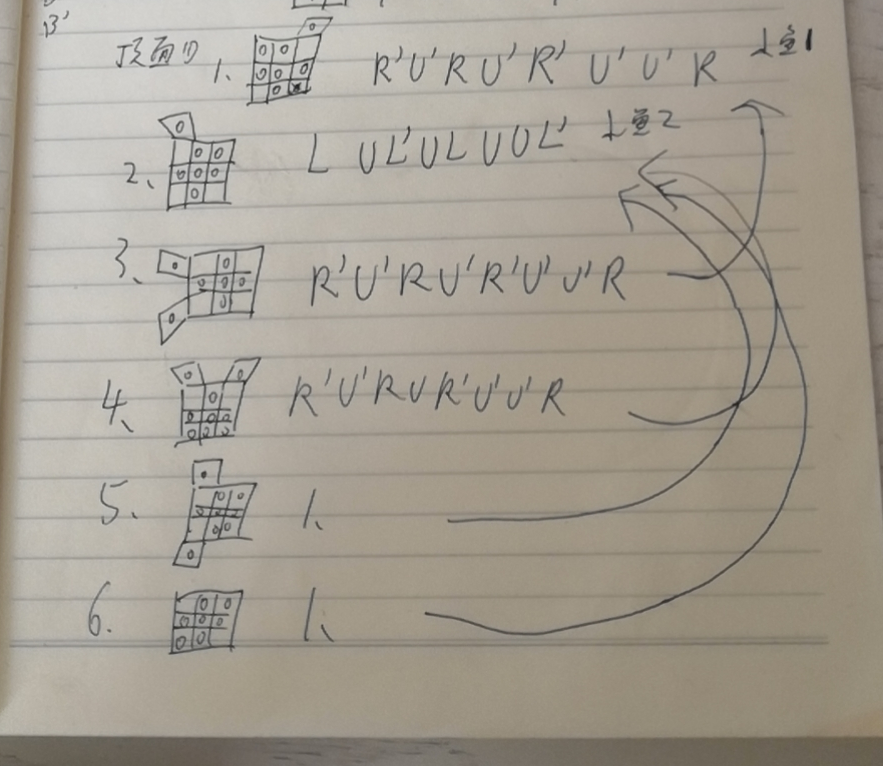 B'
顶面
1、 R'U'RU'R' U'U' R 小鱼1
2、 L UL'ULUUL' 小鱼2
3、 R'U'RU'R'U'U'R
4、 R'U'RUR'U'U'R
5、 1、
6. 1、